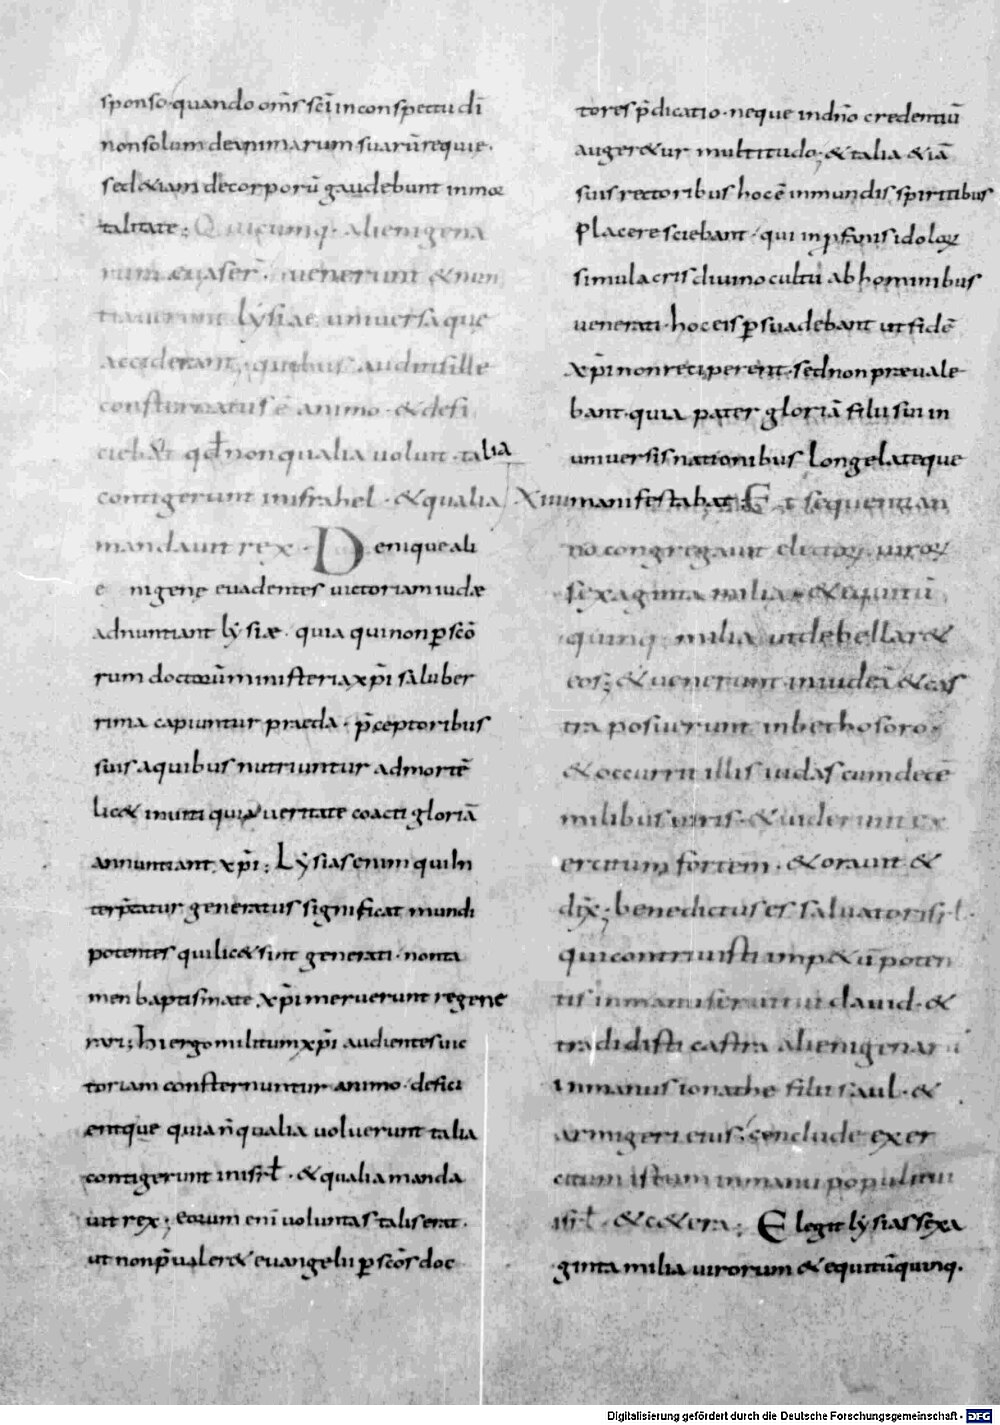 sponso quando om̄s sc̄i inconspectu dī
non solum de animarum suarū requie.
sed &iam de corporū gaudebunt inmor
talitate; Quicumq· alienigena
rum euaser̄· uenerunt & nun
tiauerunt lẏsiae uniuersa que
acciderant; quibus auditis ille
consternatus ē animo· & defi
cieb&· qđ non qualia uoluit· talia
contigerunt inisrahel· & qualia
mandauit rex· Denique ali
enigene euadentes uictoriam iudae
adnuntiant lẏsiae· quia qui non ꝑ sc̄o
rum doctorū ministeria xp̄i saluber
rima capiuntur praeda· p̄ceptoribus
suis a quibus nutriuntur ad mortē
lic& inuiti quia ueritate coacti gloriā
annuntiant xp̄i; Lẏsias enim qui in
terp̄tatur generatus significat mundi
potentes qui lic& sint generati· non ta
men baptismate xp̄i meruerunt regene
rari; hi ergo militum xp̄i audientes uic
toriam consternuntur animo· defici
entque quia n̄ qualia uoluerunt talia
contigerunt inisrl̄· & qualia manda
uit rex; eorum eni uoluntas talis erat·
ut non p̄ualer& euangelii ꝑ scōs doc
tores p̄dicatio· neque indn̄o credentiū
auger&ur multitudo; & talia &iā
suis rectoribus hoc ē inmundis spiritibus
placere sciebant· qui in ꝓfanis idoloꝝ
simulacris diuino cultu ab hominibus
uenerati· hoc eis ꝑsuadebant ut fidē
xp̄i non reciperent· sed non praeuale
bant· quia pater gloriā filii sui in
uniuersis nationibus longe lateque
XIIII manifestabat; Et sequenti an
no congregauit electoꝝ uiroꝝ
sexaginta milia· & equitū
quinq· milia ut debellar&
eos; & uenerunt iniudeā & cas
tra posiuerunt inbethosoro·
& occurrit illis iudas cum decē
milibus uiris· & uiderunt ex
ercitum fortem· & orauit &
dix̄; benedictus es saluator isrl̄·
qui contriuisti imp&ū poten
tis inmanu serui tui dauid· &
tradidisti castra alienigenarū
inmanus ionathe filii saul· &
armigeri eius; conclude exer
citum istum inmanu populi tui
isrl̄· & c&era; Elegit lẏsias sexa
ginta milia uirorum & equitū quinq.
Digitalisierung gefördert durch die Deutsche Forschungsgemeinschaft - DFG